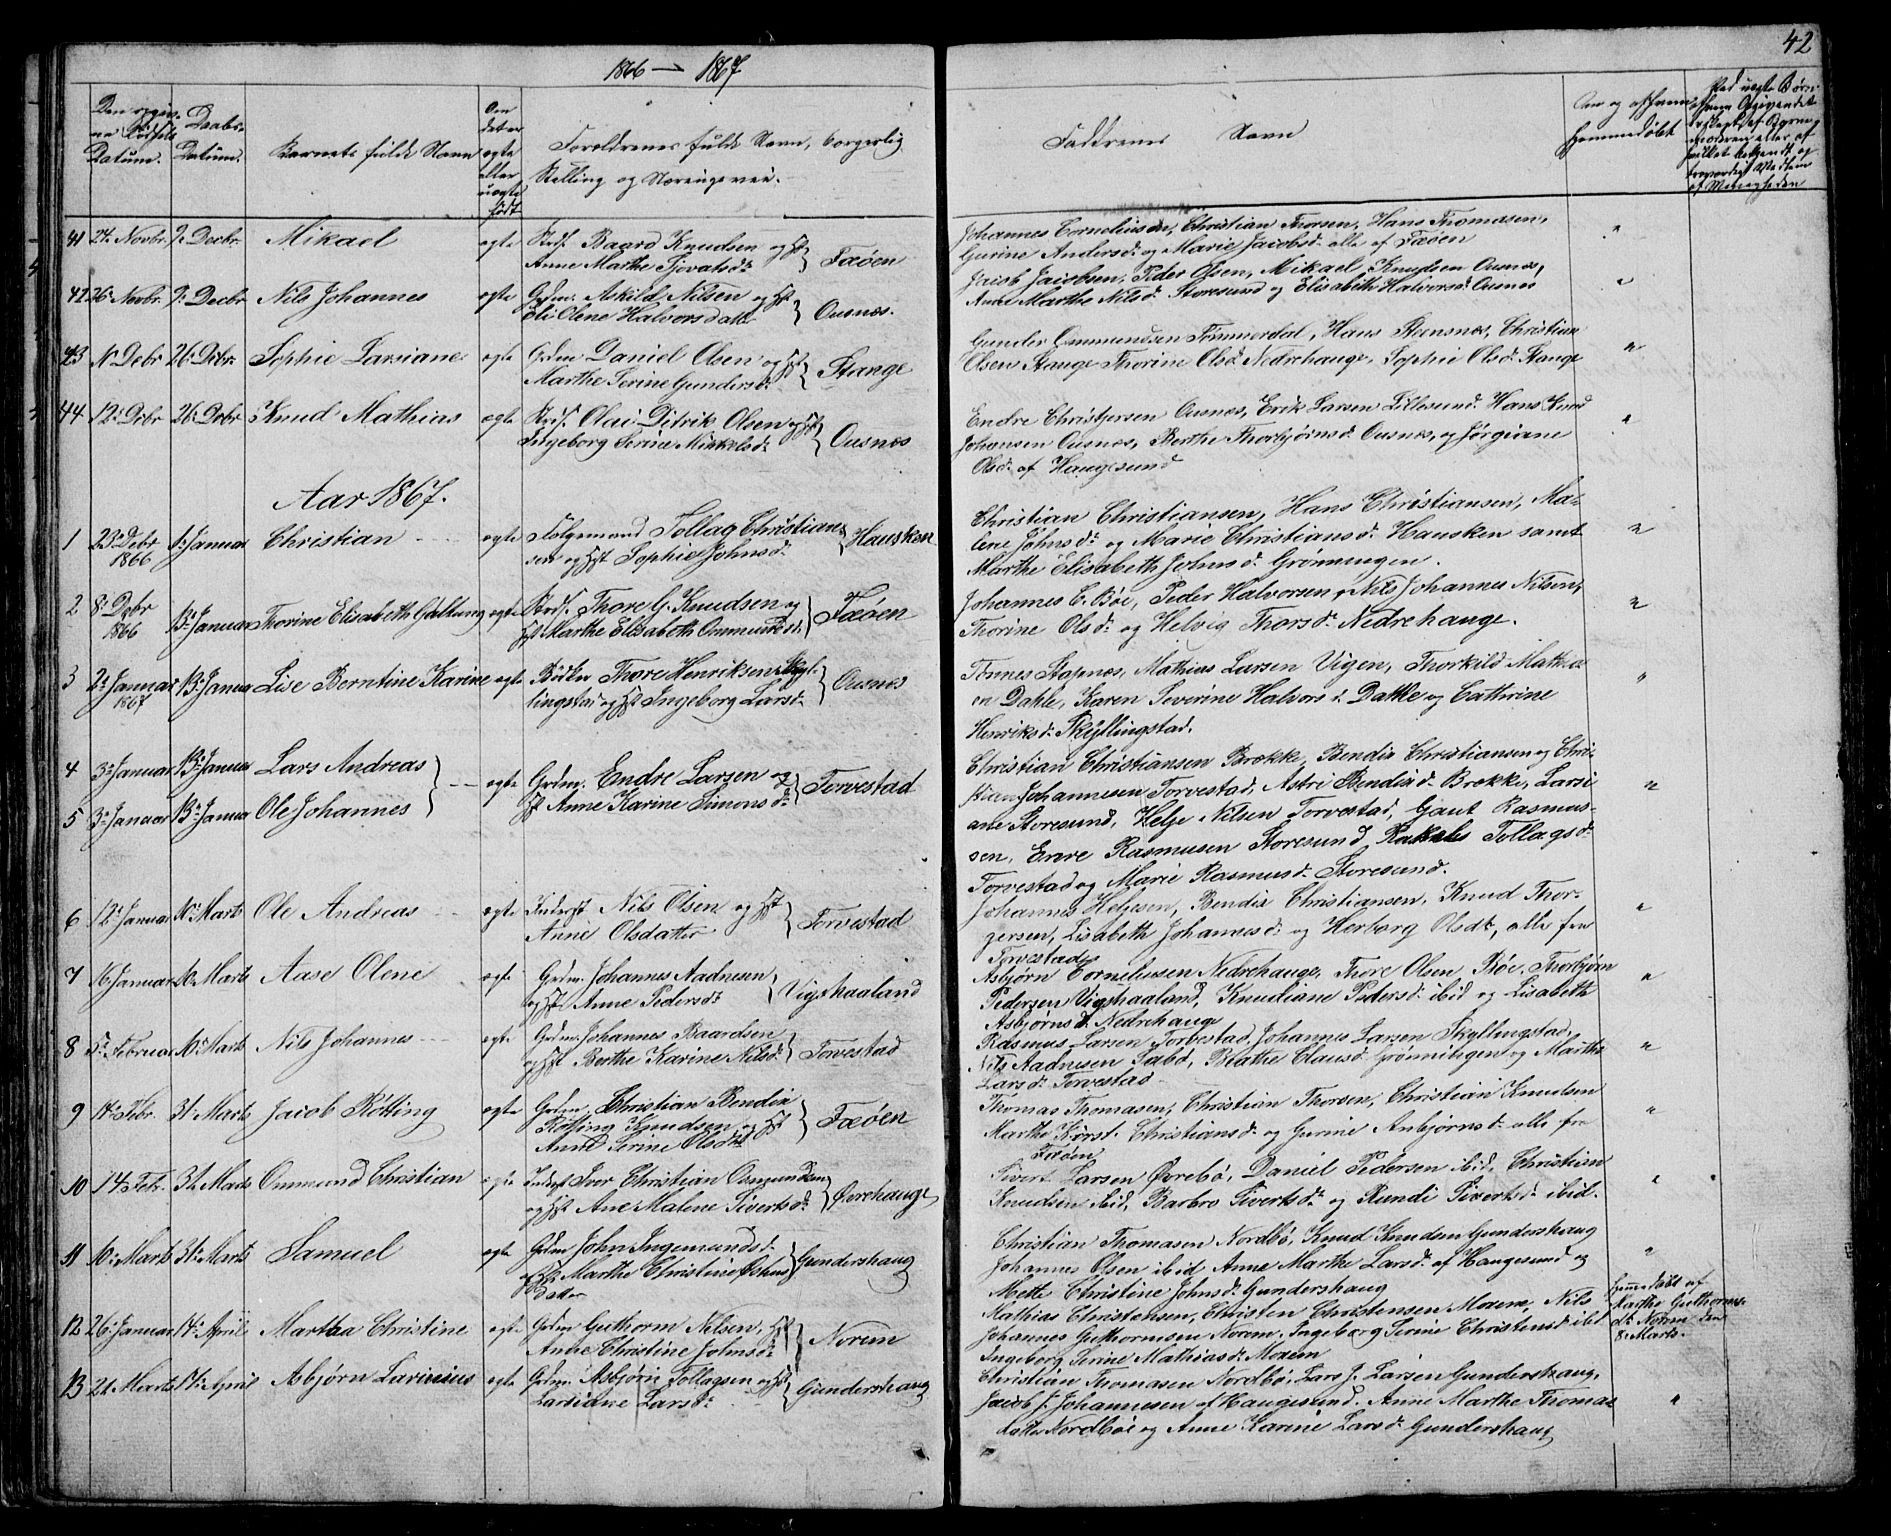 42
1866 — 1867
Daabs-
Datum.
Datum.
Barnets fulde Navn
Om
det er
ægte
eller
uægte
født
Forældrenes fulde Navn, borgerlig
Stilling og Næringsvei.
Faddernes Navn
hjemmedøbt
41 24. Novbr. 9. Decbr. Mikael ægte Baard Knudsen og Hst
Anne Marthe Sjovatsdr. Fæøen
Johannes Corneliussen, Christian Thorsen, Hans Thomasen,
Gurine Andersdr. og Marie Jacobsdr. alle af Fæøen
42 26. Novbr. 9. Decbr. Nils Johannes ægte Grdm. Askild Nilsen og Hst
Eli Olene Halvorsdatter Ousnes.
Jacob Jacobsen, Peder Olsen, Mikael Knudsen Ousnes,
Anne Marthe Nilsdr. Storesund og Elisabeth Halvorsdr. Ousnes
43 11 Debr 26. Debr. Sophie Larsiane ægte Grdm Daniel Olsen og Hst
Marthe Serine Gundersdr. Stange
Gunder Ommundsen Tömmerdal, Hans Stensnes, Christian
Olsen Stange Thorine Olsdr. Nedrehauge, Sophie Olsdr. Stange
44 12. Debr 26. Debr Knud Mathias ægte Olai Ditrik Olsen og Hst
Ingeborg Serine Mikkelsdr. Ousnes
Endre Christjersen Ousnes, Erik Larsen Lillesund. Hans Knud
Johansen Ousnes, Berthe Thorbjørnsdr. Ousnes, og Jørgiane
Olsdr. af Haugesund
Aar 1867.
1 23. Debr 1866 1. Januar Christian ægte Følgemand Tollag Christian-
sen og Hst Sophie Johnsdr. Hausken
Christian Christiansen, Hans Christiansen, Ma-
lene Johnsdr. og Marie Christiansdr. Hausken samt
Marthe Elisabeth Johnsdr. Grønningen.
2 8. Debr 1866 13. Januar Thorine Elisabeth Galtung ægte Thore G. Knudsen og
Hst Marthe Elisabeth Ommundsdr. Fæøen
Johannes C. Bøe, Peder Halvorsen, Nils Johannes Nilsen,
Thorine Olsdr. og Helvig Thorsdr. Nedrehauge.
3 2. Januar 1867 13. Januar Lise Berntine Karine ægte Bödker Thore Henriksen Skyl-
lingstad og Hst Ingeborg Larsdr. Ousnes
Tønnes Stapnes, Mathias Larsen Vigen, Thorkild Mathia
en Dahle, Karen Severine Halvorsdr. Dahle og Cathrine
Henriksdr. Skyllingstad.
4 3. Januar 13. Januar Lars Andreas
5 3. Januar 13. Januar Ole Johannes
ægte Grdm. Endre Larsen og
Hst Anne Karine Simonsdr. Torvestad
Christian Christiansen Brække, Bendix Christiansen og Chri-
stian Johannesen Torvestad, Astri Bendixdr. Brekke, Larsi
ane Storesund, Helje Nilsen Torvestad, Gaut Rasmus-
sen, Enne Rasmusen Storesund, Tollagsdr.
Torvestad og Marie Rasmusdr. Storesund.
6 12. Januar 10. Marts Ole Andreas ægte Inderst Nils Olsen og Hst
Anne Olsdatter Torvestad
Johannes Heljesen, Bendix Christiansen, Knud Thor-
gersen, Lisabeth Johannesdr. og Herborg Olsdr., alle fra
Torvestad
7 16. Januar 10. Marts Aase Olene ægte Grdm. Johannes Aadnesen
og Hst Anne Pedersdr. Vigshaaland
Asbjørn Corneliusen Nedrehauge, Thore Olsen Bøe, Thorbjørn
Pedersen Vigshaaland, Knudiane Pedersdr. ibid og Lisabeth
Asbjørnsdr. Nedrehauge
8 5. Februar 10. Marts Nils Johannes ægte Grdm. Johannes Baardsen
og Hst Berthe Karine Nilsdr. Torvestad
Rasmus Larsen Torvestad, Johannes Larsen Skyllingstad,
Nils Aadnesen Sabø, Beathe Clausdr. Grønningen og Marthe
Larsdr. Torvestad
9 14. Febr. 31. Marts Jacob Røtting ægte Grdm. Christian Bendix
Røtting Knudsen og Hst
Anne Serine Olsdr. Fæøen
Thomas Thomasen, Christian Thorsen, Christian Knudsen
Marthe Kørst. Christiansdr. og Gurine Anbjørnsdr. alle fra
Fæøen
10 14. Febr. 31. Marts Ommund Christian ægte Inderst Iver Christian Ommundsen
og Hst Ane Malene Sivertsdr. Øvrehauge
Sivert Larsen Øvrebø, Daniel Pedersen ibid, Christian
Knudsen ibid, Barbro Sivertsdr. og Rundi Sivertsdr. ibid.
11 10. Marts 31. Marts Samuel ægte Grdm John Ingemundsdr.
og Hst Marthe Christine Johns
datter Gundershaug
Christian Thomasen Nordbø, Knud Knudsen Gundershaug
Johannes Olsen ibid Anne Marthe Larsdr. af Haugesund og
Mette Christine Johnsdr. Gundershaug
12 26. Januar 14. April Martha Christine ægte Grdm Guthorm Nilsen, Hst
Anne Christine Johnsdr. Norem
Mathias Christensen, Christen Christensen Moxem, Nils
Johannes Guthormsen Norem, Ingeborg Serine Christensdr. ibid
Ingeborg Serine Mathiasdr. Moxem
hjemmedøbt af
Marthe Guthorms-
dr. Norem den
8. Marts.
13 21. Marts 14. April Asbjørn Lavinius ægte Grdm. Asbjørn Tollagsen og Hst
Larsiane Larsdr. Gundershaug
Christian Thomasen Nordbø, Lars J. Larsen Gundershaug,
Jacob J. Johannesen af Haugesund. Anne Marthe Thomas
datter Nordbøe og Anne Karine Larsdr. Gundershaug